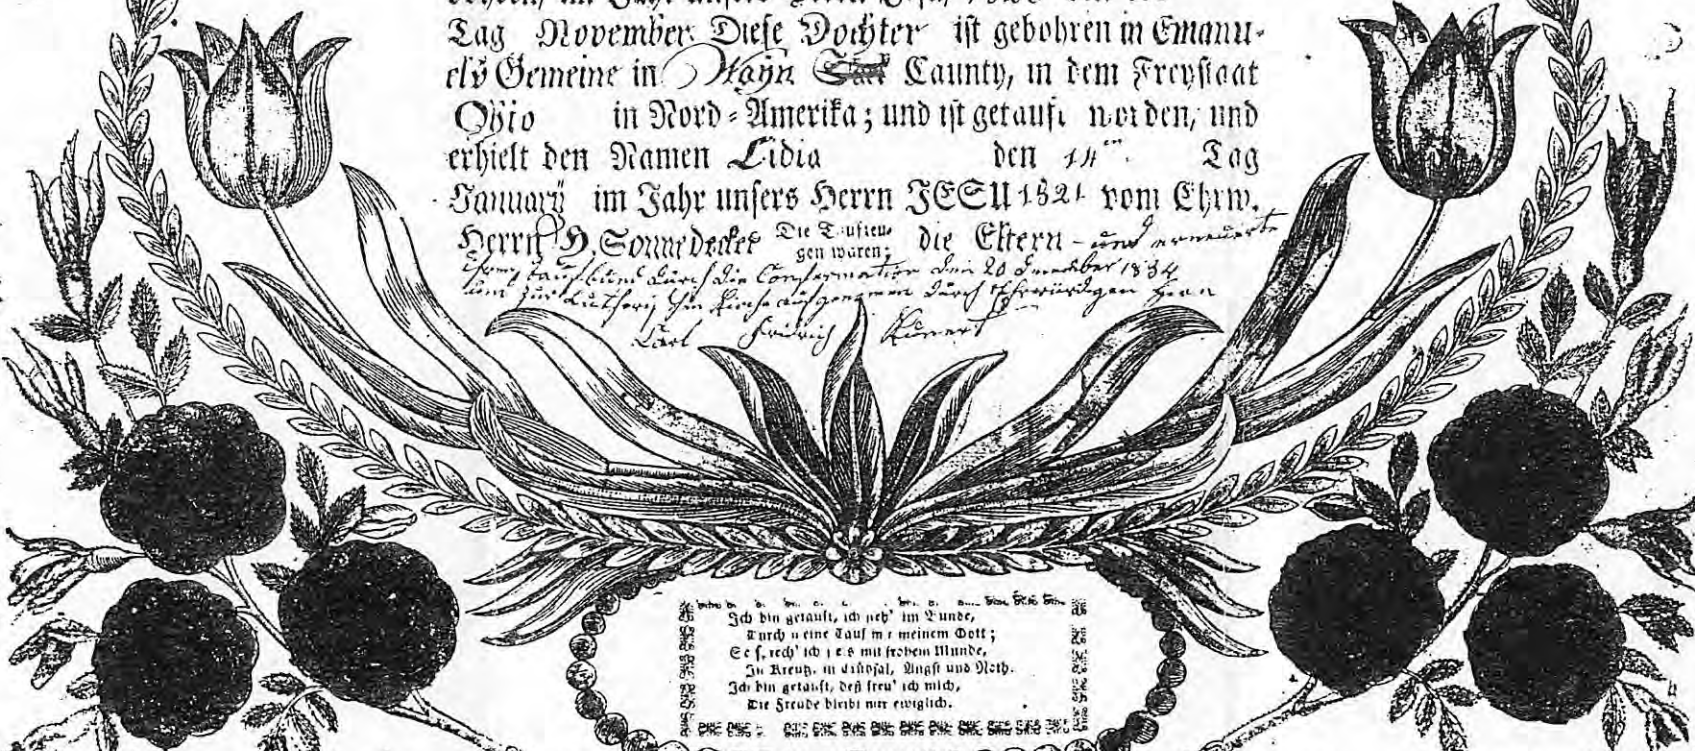 im Jahr unsers Herrn Jesu,
Tag November. Diese Dochter ist gebohren in Emanu-
els Gemeine in Wayn Caunty, in dem Freystaat
Ohio in Nord-Amerika; und ist getauft worden, und
erhielt den Namen Lidia den 14ten Tag
January im Jahr unsers Herrn JESU 1821 vom Ehrw.
Herrn H. Sonnedecker Die Taufzeu-
gen waren; die Eltern - und erneuerte
ihren Taufbund durch die Confermation den 20 December 1834
und zur Lutherischen Kirche aufgenomen durch Ehrwürdigen Herrn
Carl Fridrich
Ich bin getauft, ich steh' im Bunde,
Durch meine Tauf mit meinem Gott;
So sprech' ich stets mit frohem Munde,
In Kreutz, in Trübsal, Angst und Noth.
Ich bin getauft, deß freu' ich mich,
Die Freude bleibt mir ewiglich.